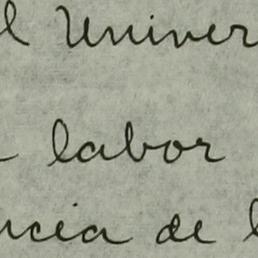 l Univer
labor
ncia de l